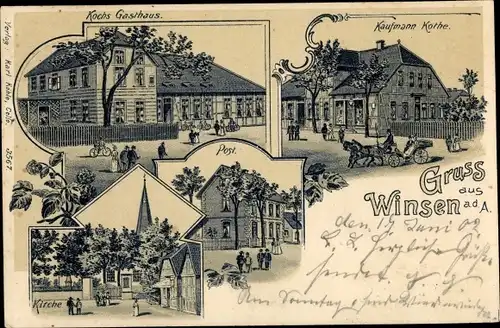 Kochs Gasthaus.
Kaufmann Kothe.
Verlag: Karl Kohle, Celle. 2567
Post.
Gruss
aus
Winsen a.d. A.
den 17 Juni 02
Herzliche Grüße
sendet
Kirche
Am Sonntag